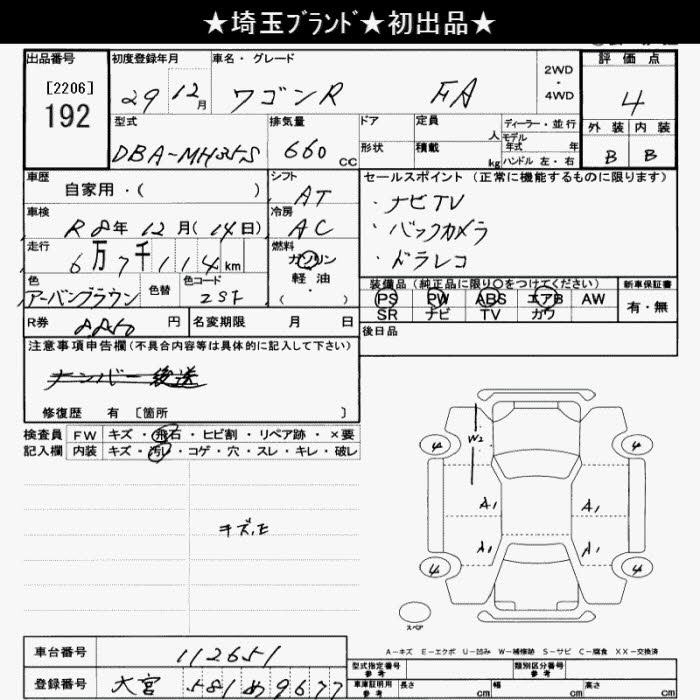 ★埼玉ﾌﾞﾗﾝﾄﾞ★初出品★
出品番号
[2206]
192
初度登録年月
29 12月
車名・グレード
ワゴンR FA
2WD
・
4WD
評価点
4
外装 内装
B B
型式
DBA-MH35S
排気量
660 CC
ドア
形状
定員 人
積載 kg
ディーラー・並行
モデル年式 年
ハンドル 左・右
車歴
自家用・( )
シフト
AT
セールスポイント(正常に機能するものに限ります)
・ナビTV
・バックカメラ
・ドラレコ
車検
R8年 12月(14日)
冷房
AC
走行
6万7千114km
燃料
ガソリン
軽油
・( )
色
アーバンブラウン
色替
色コード
ZST
装備品(純正品に限り○をつけてください)
PS PW ABS エアB AW
SR ナビ TV カワ
新車保証書
有・無
R券 円
名変期限 月 日
後日品
注意事項申告欄(不具合内容等は具体的に記入して下さい)
ナンバー後送
修復歴 有 [箇所 ]
検査員記入欄
FW キズ・飛石・ヒビ割・リペア跡・×要
内装 キズ・汚レ・コゲ・穴・スレ・キレ・破レ
キズ,E
W2
4 4
A1 A1
A1 A1
4 4
スペア
A-キズ E-エクボ U-凹み W-補修跡 S-サビ C-腐食 XX-交換済
車台番号
112651
登録番号
大宮 581 め 9677
型式指定番号
参考
類別区分番号
参考
車庫証明用
参考
長さ cm 幅 cm 高さ cm